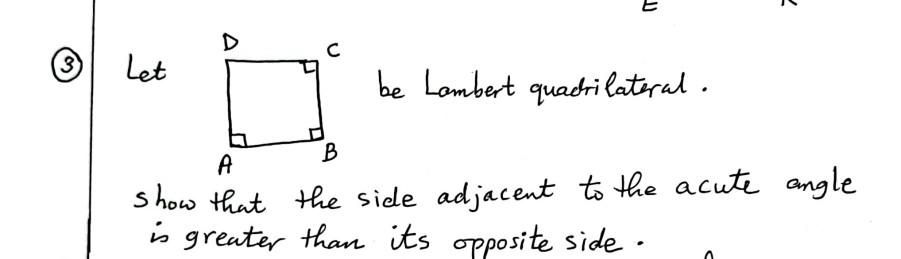 E
③ Let D C be Lambert quadrilateral.
A B
show that the side adjacent to the acute angle
is greater than its opposite side.